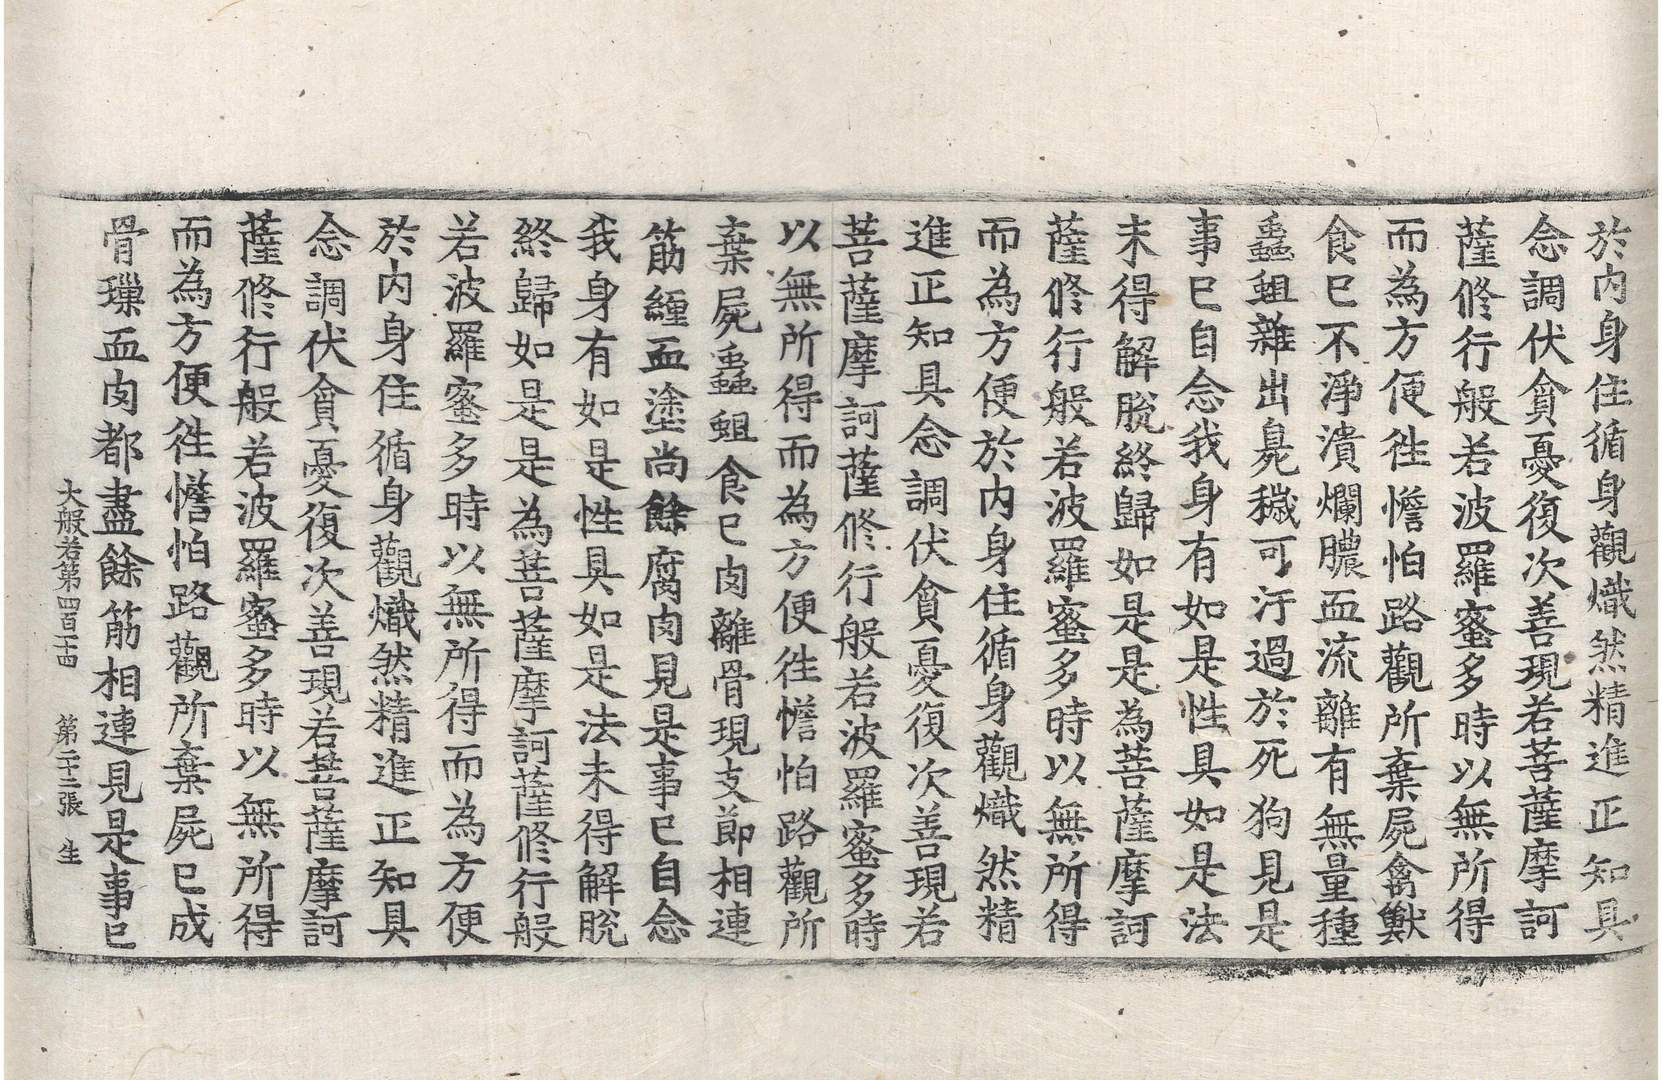 於内身住循身觀熾然精進正知具
念調伏貪憂復次善現若菩薩摩訶
薩修行般若波羅蜜多時以無所得
而為方便往憺怕路觀所棄屍禽獸
食已不淨潰爛膿血流離有無量種
蟲蛆雜出臭穢可汙過於死狗見是
事已自念我身有如是性具如是法
未得解脫終歸如是是為菩薩摩訶
薩修行般若波羅蜜多時以無所得
而為方便於内身住循身觀熾然精
進正知具念調伏貪憂復次善現若
菩薩摩訶薩修行般若波羅蜜多時
以無所得而為方便往憺怕路觀所
棄屍蟲蛆食已肉離骨現支節相連
筋纏血塗尚餘腐肉見是事已自念
我身有如是性具如是法未得解脫
終歸如是是為菩薩摩訶薩修行般
若波羅蜜多時以無所得而為方便
於内身住循身觀熾然精進正知具
念調伏貪憂復次善現若菩薩摩訶
薩修行般若波羅蜜多時以無所得
而為方便往憺怕路觀所棄屍已成
骨璅血肉都盡餘筋相連見是事已
大般若第四百十四 第二十二張 生